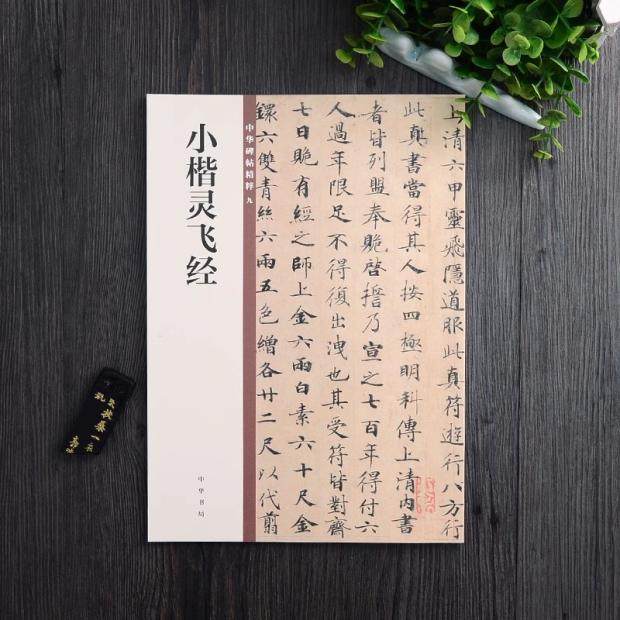 小楷灵飞经
中华碑帖精粹 九
中华书局
上清六甲靈飛隱道服此真符遊行八方行
此真書當得其人按四極明科傳上清內書
者皆列盟奉貺啓誓乃宣之七百年得付六
人過年限足不得復出洩也其受符皆對齋
七日貺有經之師上金六兩白素六十尺金
鐶六雙青絲六兩五色繒各廿二尺以代翦